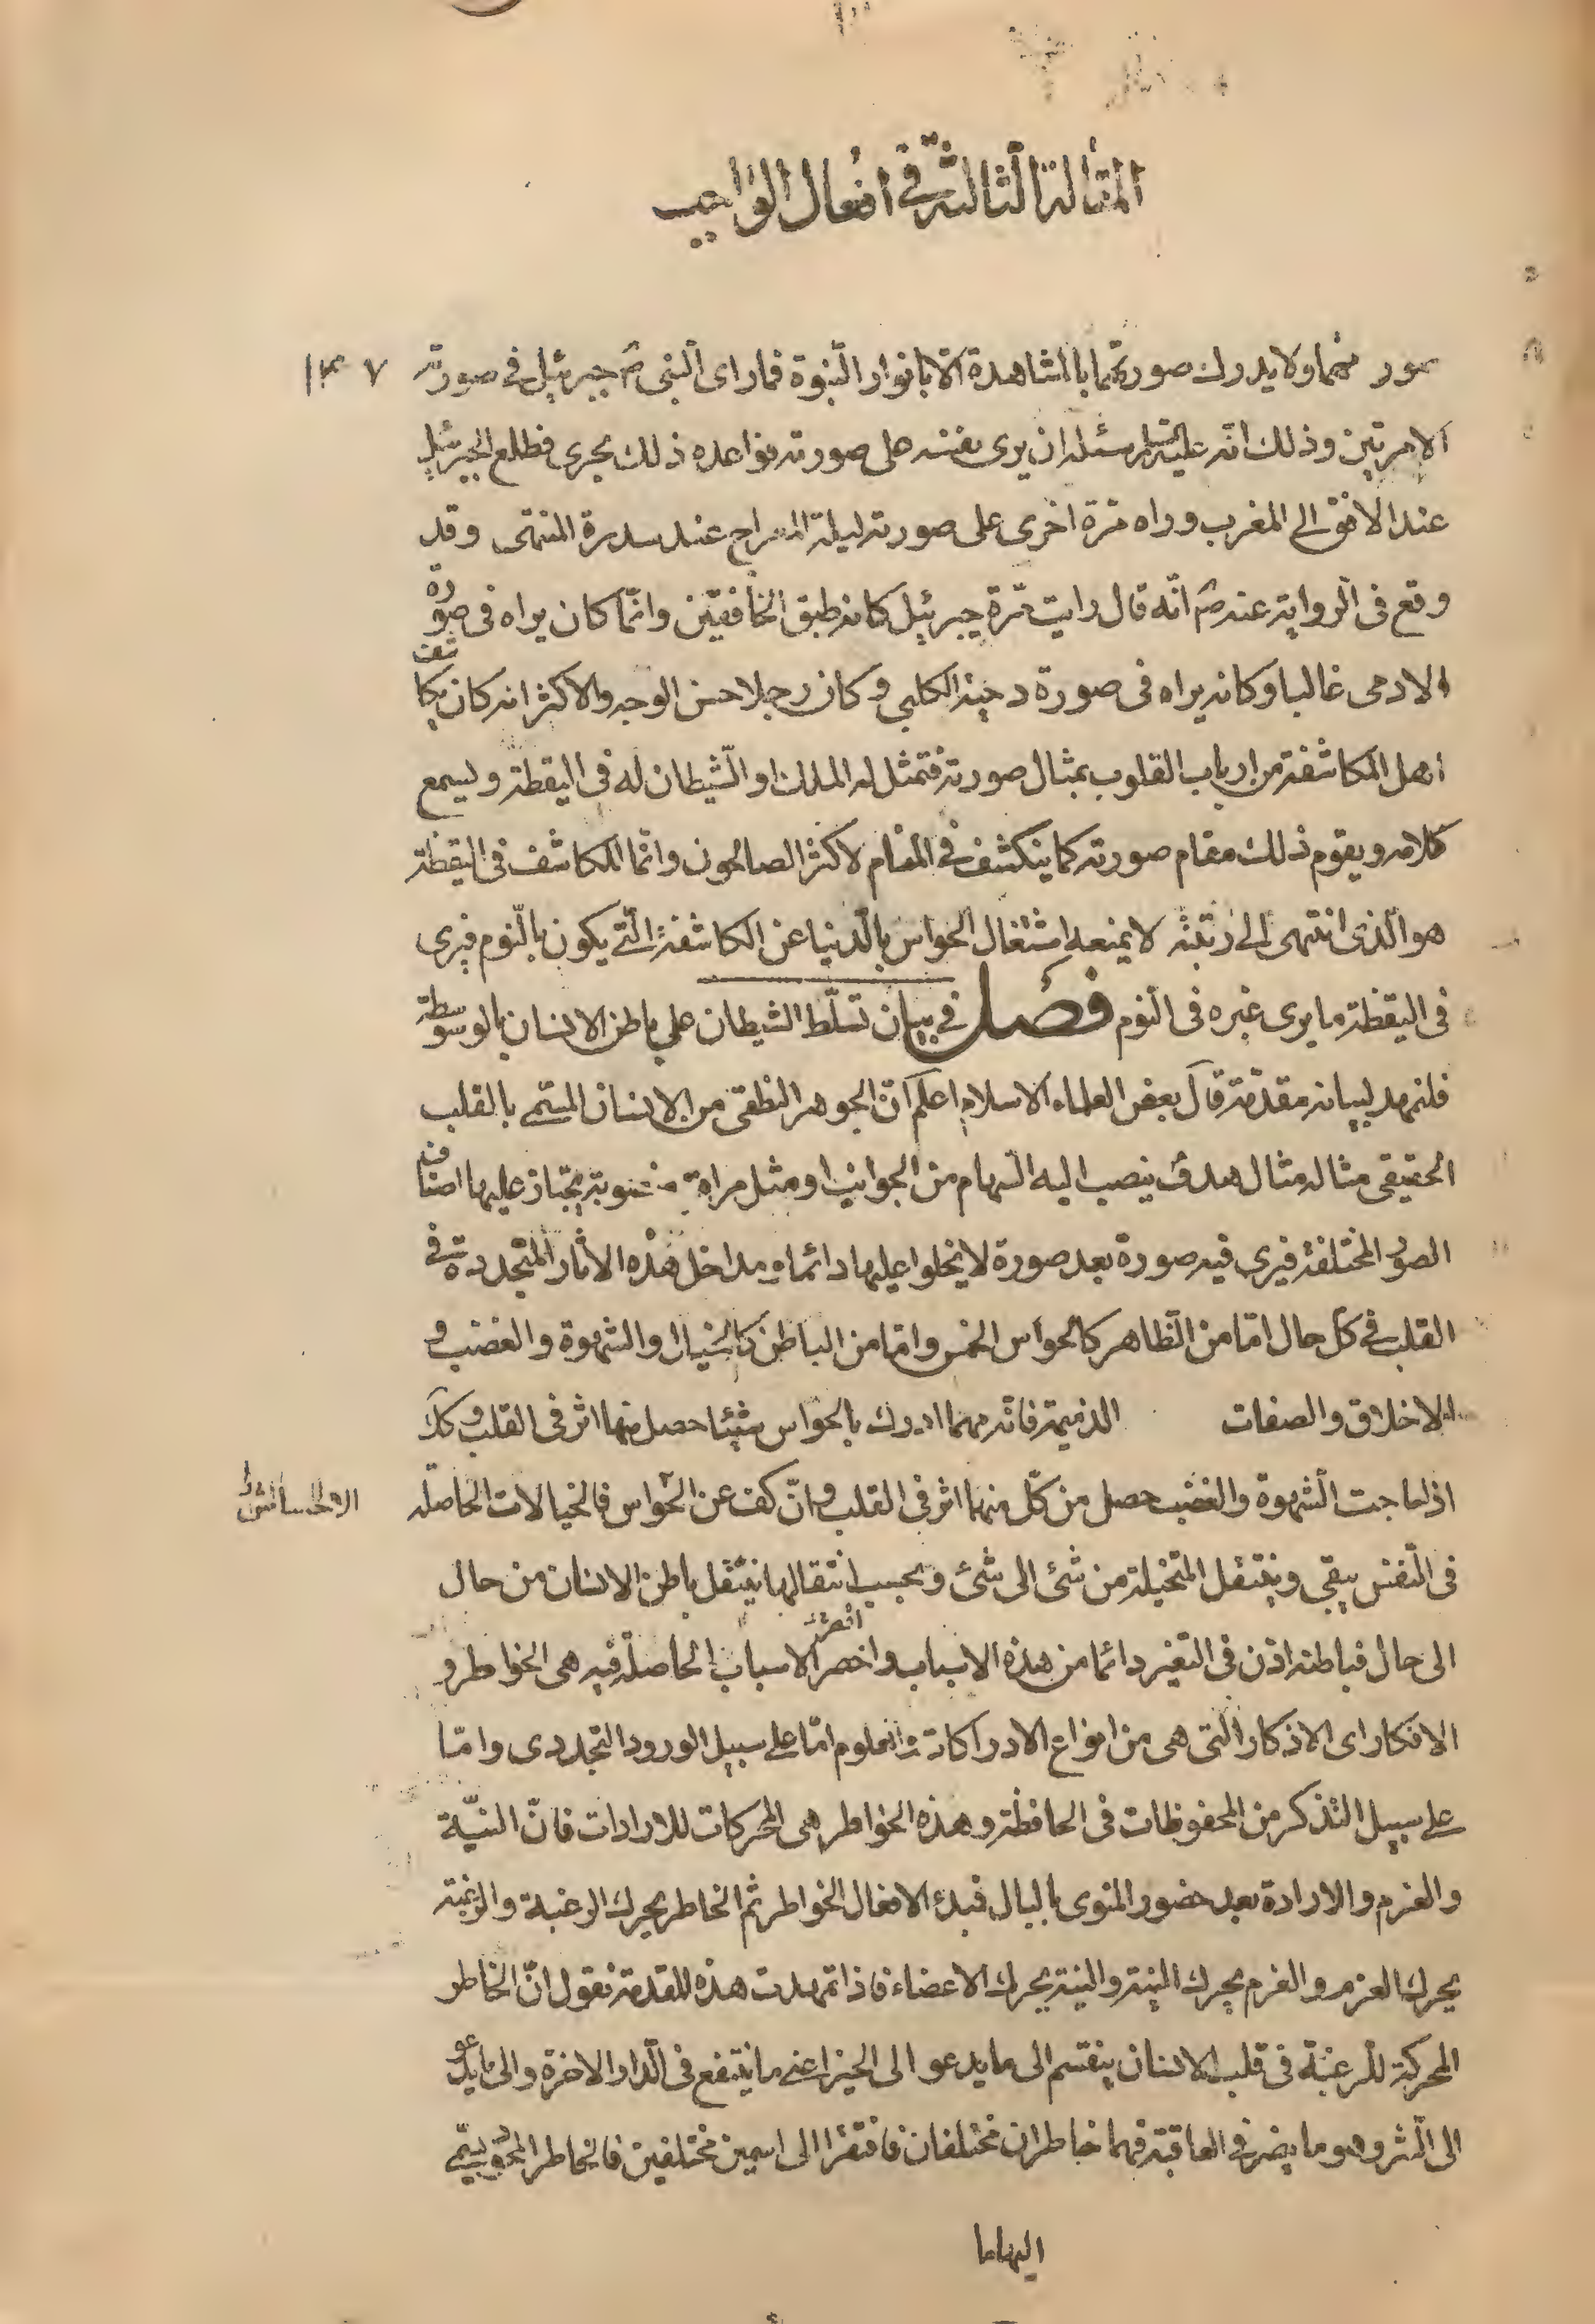 المقالة الثالثة في افعال الواجب
ولا يدرك صورتهما بالمشاهدة الا بانوار النبوة فما رای النبی ص جبرئیل فی صورته
الا مرتین وذلك انه علیه السلم سئله ان یری نفسه علی صورته فواعده ذلك بحری فطلع الجبرئیل
عند الافق الی المغرب وراه مرة اخری علی صورته لیلة المعراج عند سدرة المنتهی وقد
وقع فی الروایة عنه ص انه قال رایت مرة جبرئیل کانه طبق الخافقین وانما کان یراه فی صورة
الادمی غالبا وکانه یراه فی صورة دحیة الکلبی وکان رجلا حسن الوجه والاکثر انه کان یکاشف
اهل المکاشفة من ارباب القلوب بمثال صورته فتمثل له الملك او الشیطان له فی الیقظة ویسمع
کلامه ویقوم ذلك مقام صورته کما ینکشف فی المنام لاکثر الصالحون وانما المکاشف فی الیقظة
هو الذی انتهی الی رتبة لا یمنعه اشتغال الحواس بالدنیا عن المکاشفة التی یکون بالنوم فیری
فی الیقظة ما یری غیره فی النوم فصل فی بیان تسلط الشیطان علی باطن الانسان بالوسوسة
فلنمهد لبیانه مقدمة قال بعض العلماء الاسلام اعلم ان الجوهر النطقی من الانسان المسمی بالقلب
الحقیقی مثاله مثال هدف ینصب الیه السهام من الجوانب او مثل مراة منصوبة یجتاز علیها اصناف
الصور المختلفة فیری فیه صورة بعد صورة لا یخلوا علیها دائما ومداخل هذه الاثار المتجددة فی
القلب فی کل حال اما من الظاهر کالحواس الخمس واما من الباطن کالخیال والشهوة والغضب و
الاخلاق والصفات الذمیمة فانه مهما ادرك بالحواس شیئا حصل منها اثر فی القلب وکذا
اذا هاجت الشهوة والغضب حصل من کل منهما اثر فی القلب وان کف عن الحواس فالخیالات الحاصله
فی النفس یبقی وینتقل المتخیلة من شئ الی شئ وبحسب انتقالها ینتقل باطن الانسان من حال
الی حال فباطنه اذن فی التغیر دائما من هذه الاسباب واخصر الاسباب الحاصلة فیه هی الخواطر و
الافکار ای الاذکار التی هی من انواع الادراکات والعلوم اما علی سبیل الورود التجددی واما
علی سبیل التذکر من المحفوظات فی الحافظة وهذه الخواطر هی المحرکات للارادات فان النیة
والعزم والارادة بعد حضور المنوی بالبال فبدء الافعال الخواطر ثم الخاطر یحرك الرغبة والرغبة
یحرك العزم والعزم یحرك النیة والنیة یحرك الاعضاء فاذا تمهدت هذه المقدمة نقول ان الخاطر
المحرکة للرغبة فی قلب الانسان ینقسم الی ما یدعو الی الخیر اعنی ما ینتفع فی الدار الاخرة والی ما یدعو
الی الشر وهو ما یضر فی العاقبة فهما خاطران مختلفان فافتقرا الی اسمین مختلفین فالخاطر المحمود یسمی
الهاما